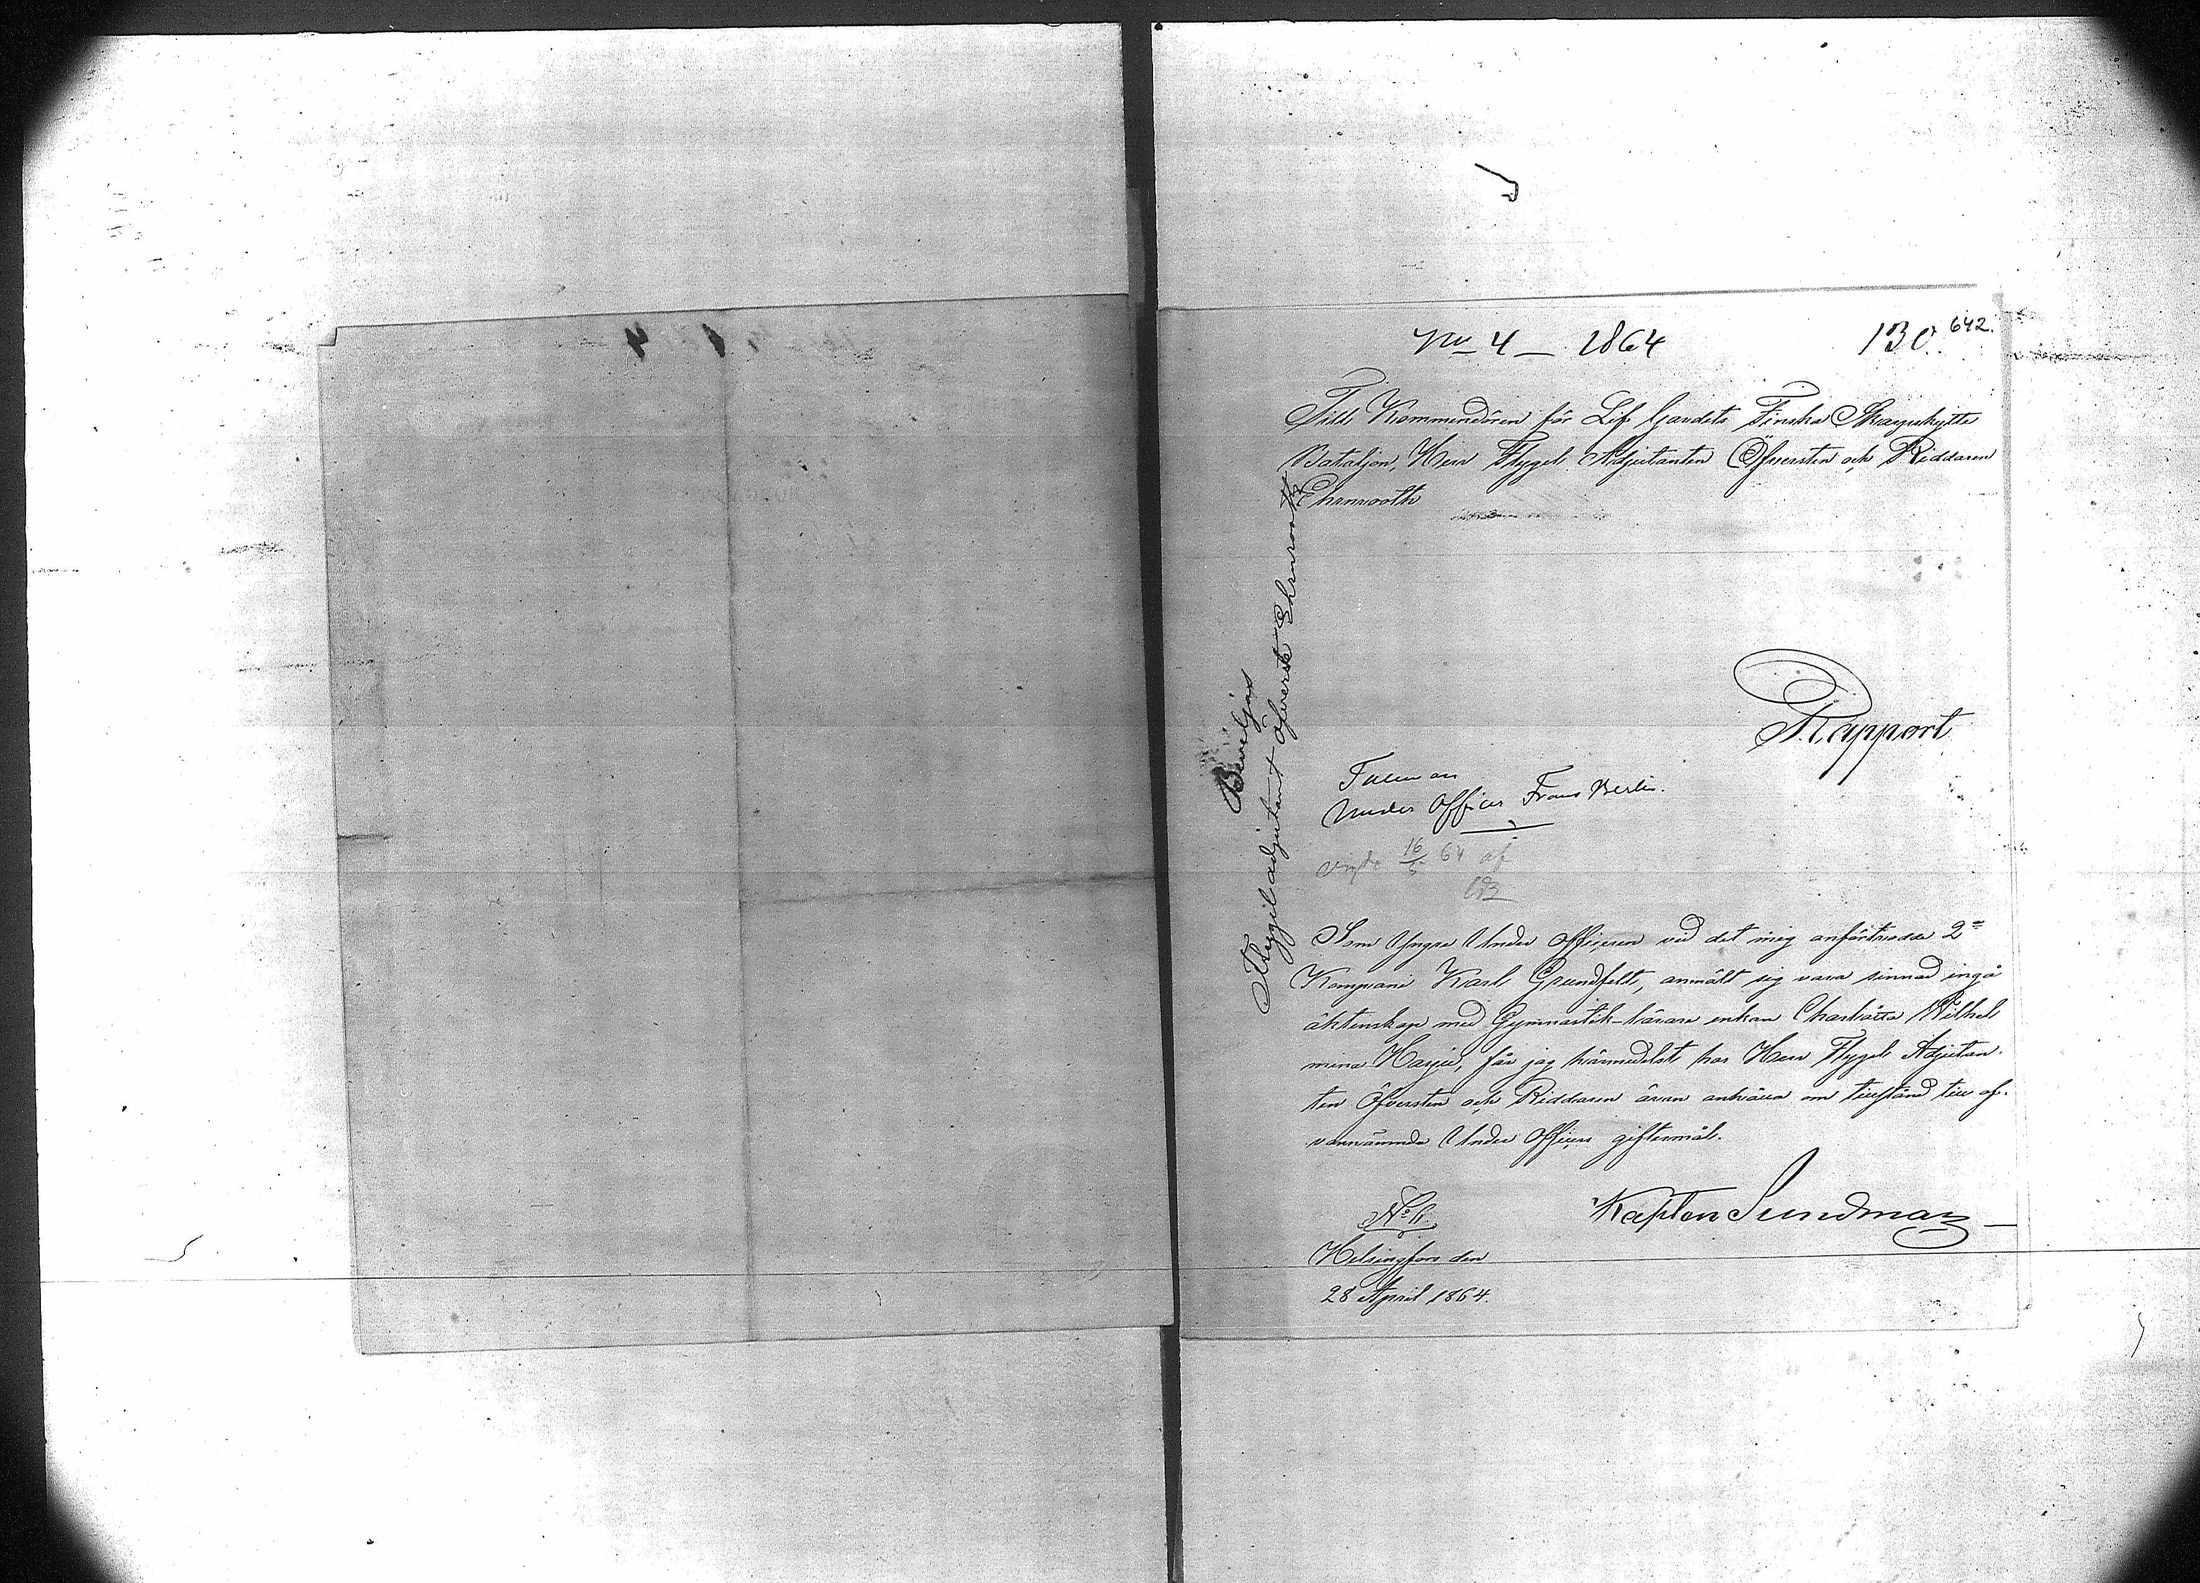 No 4 — 1864
130. 642.
Till Kommendören för Lif Gardets Finska Skarpskytte
Bataljon, Herr Flygel Adjutanten Öfversten och Riddaren
Ehrnrooth
Beviljas
Flygeladjutant Öfverste Ehrnrooth
Rapport
Taleman
Under Officer Frans Berlin.
vigde 16/5 64 af
Som Yngre Under Officeren vid det mig anförtrodda 2=
Kompani Karl Grundfelt, anmält sig vara sinnad ingå
äktenskap med Gymnastik-lärare enkan Charlotta Wilhel
mina Harju, får jag härmedelst hos Herr Flygel Adjutan-
ten Öfversten och Riddaren äran anhålla om tillstånd till of-
vannämnde Under Officers giftermål.
Kapten Sundman
No 6.
Helsingfors den
28 April 1864.